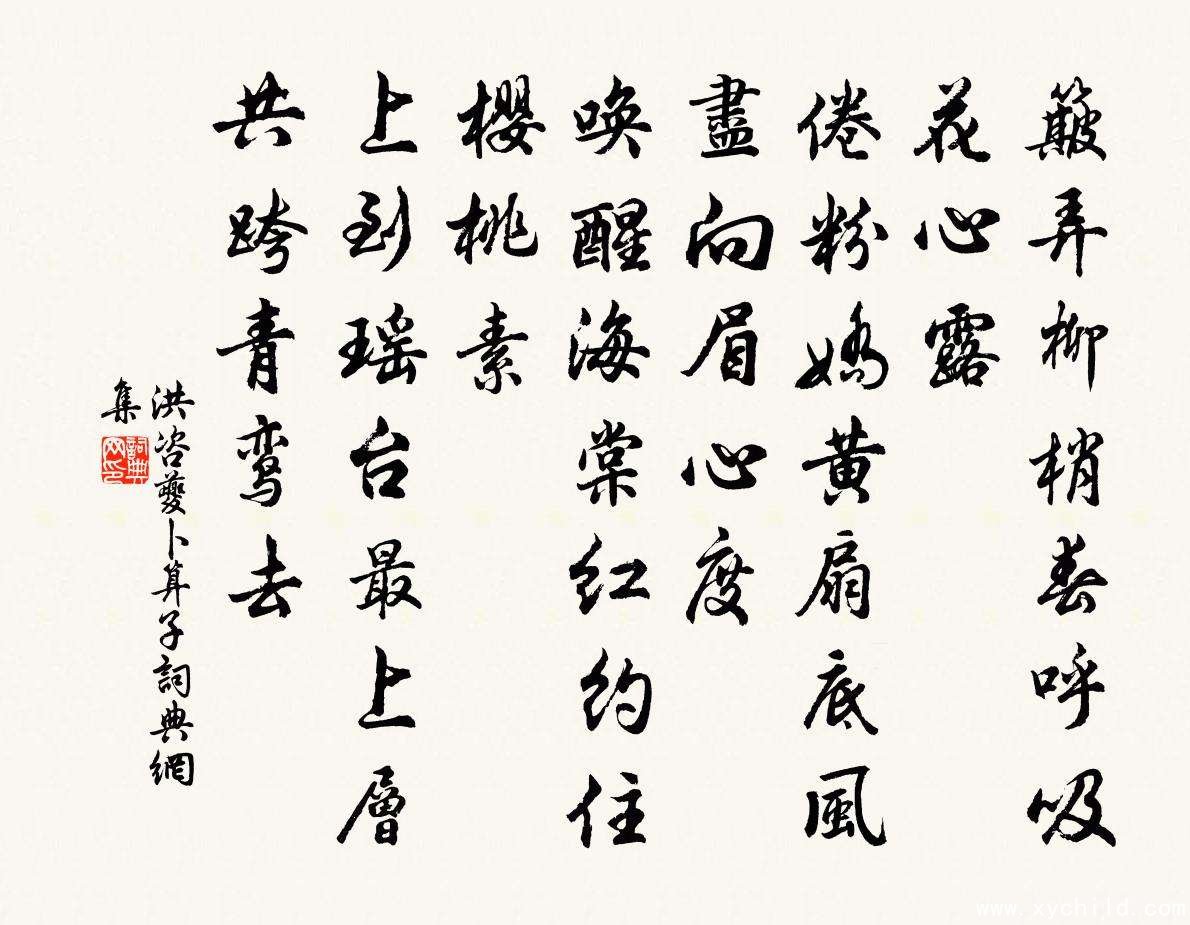 簸弄柳梢春呼吸
花心露
倦粉嬌黃扇底風
盡向眉心度
唤醒海棠红約住
櫻桃素
上到瑶台最上層
共跨青鸾去
洪咨夔卜算子詞典網
集
詞典网印
www.xychild.com